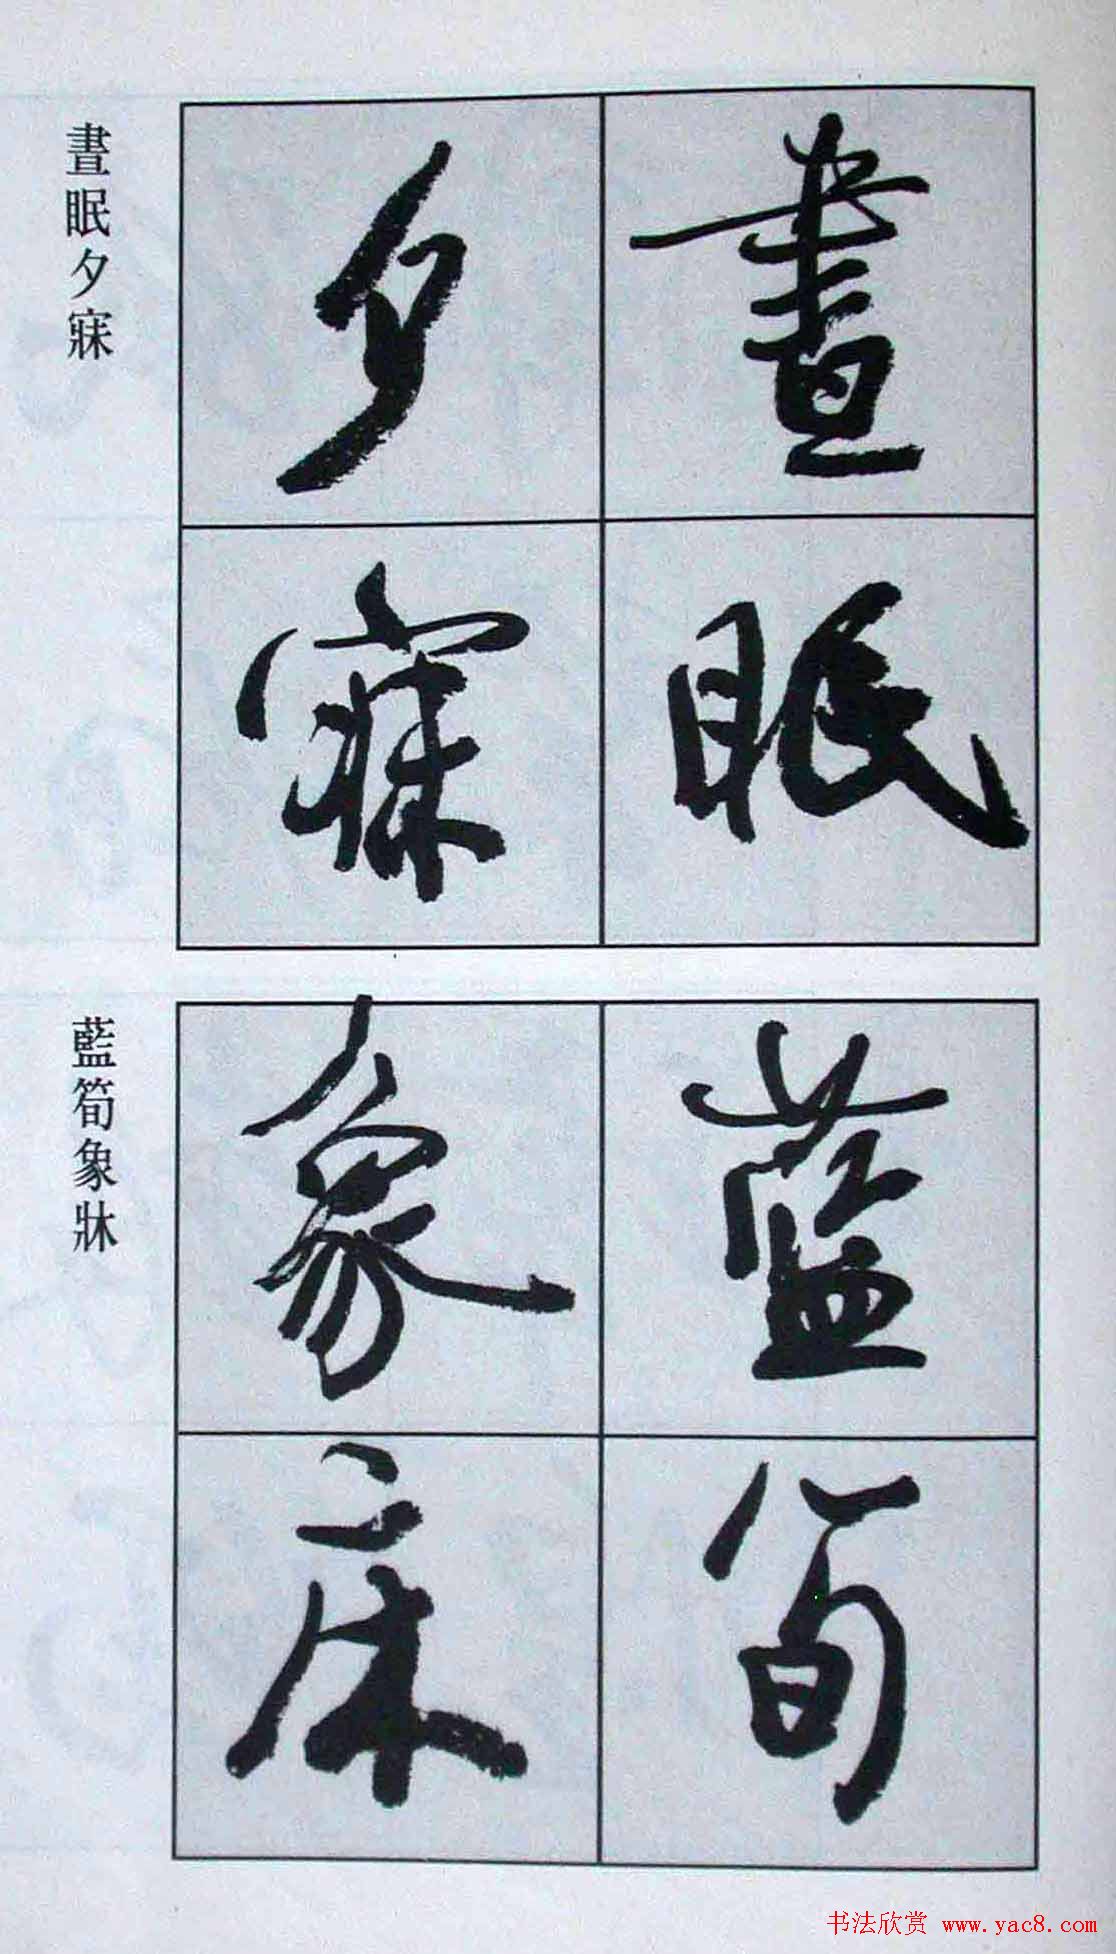 晝眠
夕寐
晝眠夕寐
藍筍
象床
藍筍象牀
书法欣赏 www.yac8.com